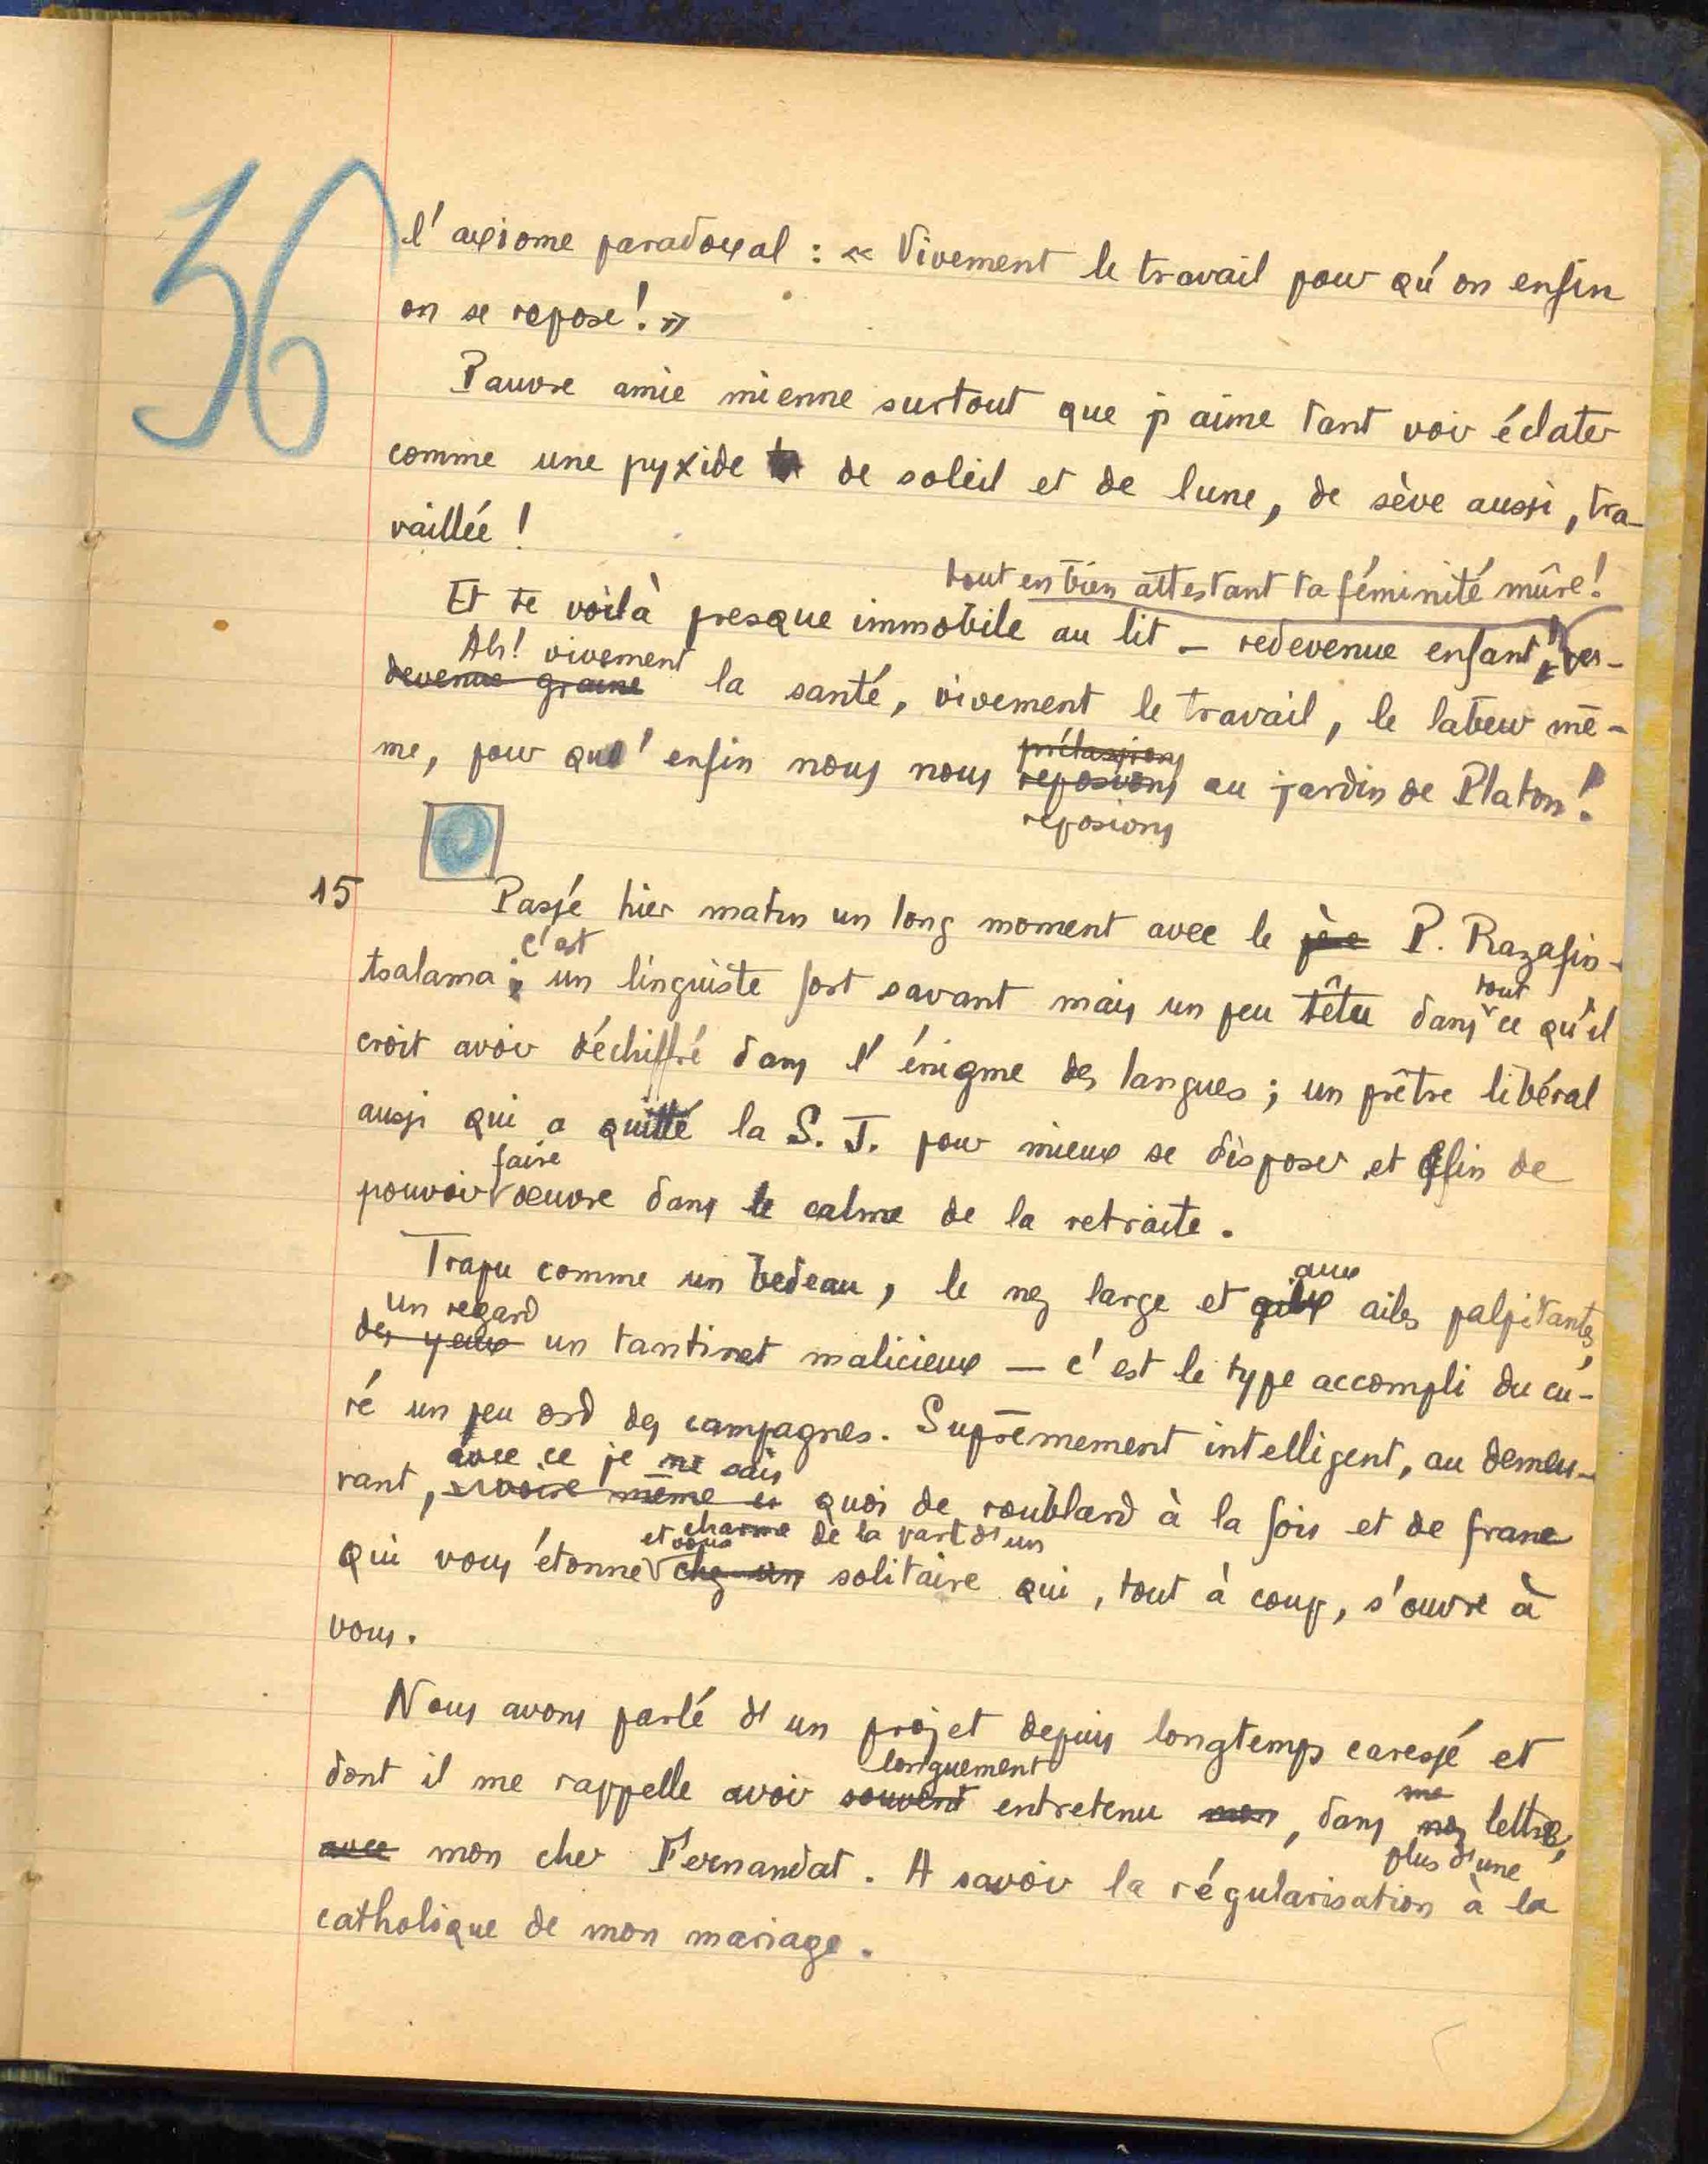 36
l'axiome paradoxal : « Vivement le travail pour qu'on enfin
on se repose! »
Pauvre amie mienne surtout que j'aime tant voir éclater
comme une pyxide de soleil et de lune, de sève aussi, tra-
vaillée !
tout en bien attestant ta féminité mûre!
Et te voilà presque immobile au lit – redevenue enfant!
Ah! vivement
devenue graine la santé, vivement le travail, le labeur mê-
me, pour qu'enfin nous nous prélassions
reposions au jardin de Platon!
reposions
15 Passé hier matin un long moment avec le P. Razafin-
c'est tout
tsalama ; un linguiste fort savant mais un peu têtu dans ce qu'il
croit avoir déchiffré dans l'énigme des langues ; un prêtre libéral
aussi qui a quitté la S. J. pour mieux se disposer et afin de
faire
pouvoir œuvre dans le calme de la retraite.
aux
Trapu comme un bedeau, le nez large et ailes palpitantes,
un regard
des yeux un tantinet malicieux — c'est le type accompli du cu-
ré un peu ord des campagnes. Suprêmement intelligent, au demeu-
avec ce je ne sais
rant, voire même quoi de roublard à la fois et de franc
et vous charme de la part d'un
qui vous étonne chez un solitaire qui, tout à coup, s'ouvre à
vous.
Nous avons parlé d'un projet depuis longtemps caressé et
longuement me
dont il me rappelle avoir souvent entretenu mon, dans nos lettre,
plus d'une
avec mon cher Fernandat. A savoir la régularisation à la
catholique de mon mariage.